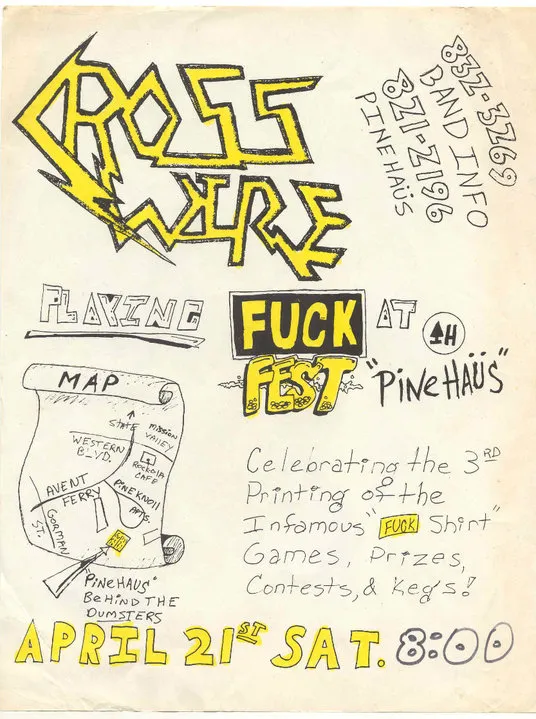 CROSS
WIRE
832-3269
BAND INFO
821-2196
PINEHAÜS
PLAYING
FUCK
FEST
AT
H
"PiNeHAÜS"
MAP
STATE
MISSION
VALLEY
WESTERN
BLVD.
ROCKOLA
CAFE
AVENT
FERRY
PINE KNOLL
APTS.
GORMAN
ST.
"PINEHAUS"
BEHiND THE
DUMSTERS
Celebrating the 3RD
Printing of the
Infamous "FUCK Shirt"
Games, Prizes,
Contests, & Keg's!
APRIL 21ST SAT. 8:00